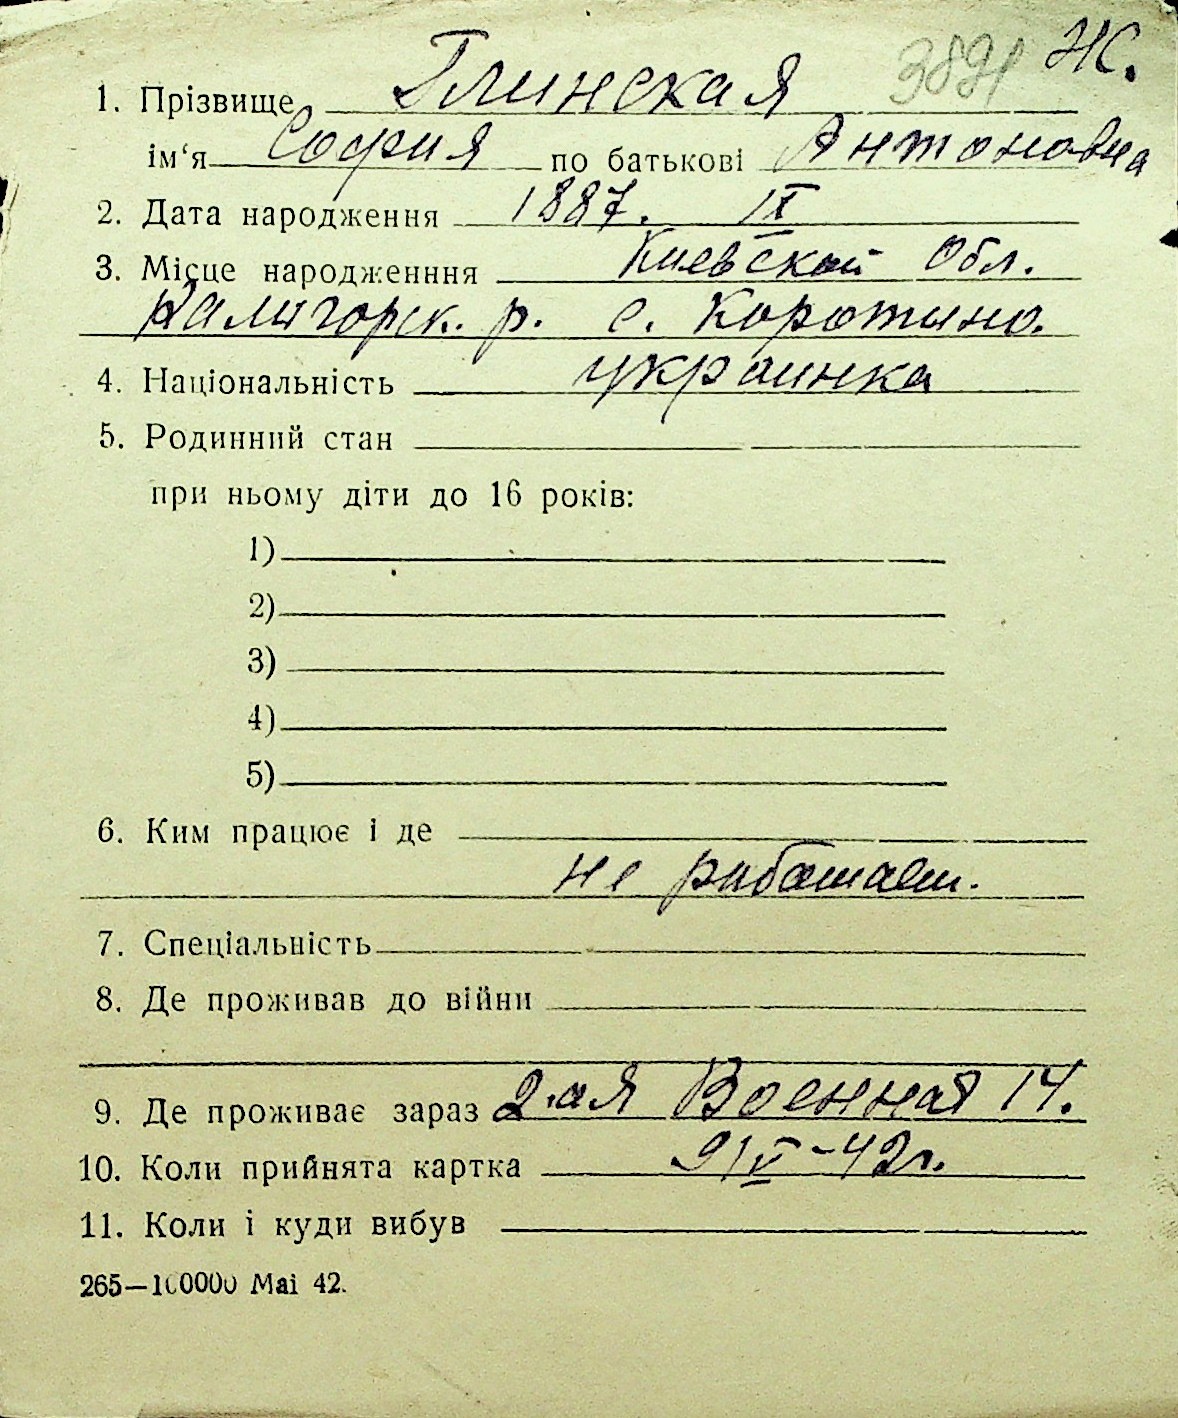 3891 Ж.
1. Прізвище Глинская
ім‘я София по батькові Антоновна
2. Дата народження 1887. IX
3. Місце народженння Киевской Обл.
Калигорск. р. с. Коротино.
4. Національність украинка
5. Родинний стан
при ньому діти до 16 років:
1)
2)
3)
4)
5)
6. Ким працює і де
не работает.
7. Спеціальність
8. Де проживав до війни
9. Де проживає зараз 2-ая Военная 14.
10. Коли прийнята картка 9/V-42г.
11. Коли і куди вибув
265—100000 Маі 42.